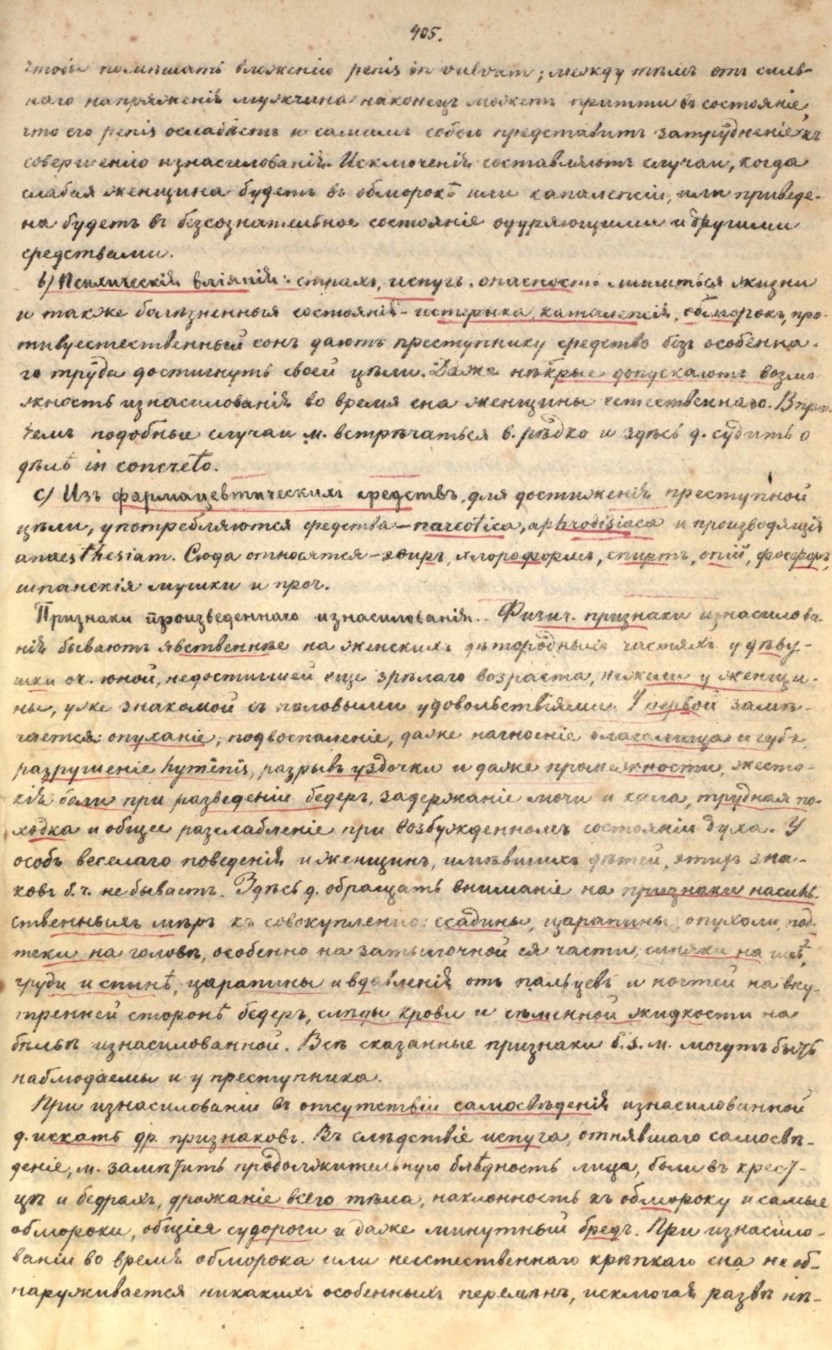 405.
чтобы помѣшать вложенію penis in vulvam; между тѣмъ отъ силь-
наго напряженія мужчина наконецъ можетъ притти въ состояніе,
что его penis ослабѣетъ и самимъ собою представитъ затрудненіе къ
совершенію изнасилованія. Исключенія составляютъ случаи, когда
слабая женщина будетъ въ обморокѣ или каталепсіи, или приведе-
на будетъ въ безсознательное состояніе одуряющими и другими
средствами.
b) Психическія вліянія: страхъ, испугъ, опасность лишиться жизни
и также болѣзненныя состоянія - истерика, каталепсія, обморокъ, про-
тивуестественный сонъ даютъ преступнику средство безъ особенна-
го труда достигнуть своей цѣли. Даже нѣкрые допускаютъ возмо-
жность изнасилованія во время сна женщины естественнаго. Впроч.
тѣмъ подобные случаи м. встрѣчаться б. рѣдко и здѣсь д. судить о
дѣлѣ in concreto.
c) Изъ фармацевтическихъ средствъ, для достиженія преступной
цѣли, употребляются средства - narcotica, aphrodisiaca и производящія
anaesthesiam. Сюда относятся - эѳиръ, хлороформъ, спиртъ, опій, фосфоръ,
шпанскія мушки и проч.
Признаки произведеннаго изнасилованія. Физич. признаки изнасилова-
нія бываютъ явственнѣе на женскихъ дѣтородныхъ частяхъ у дѣву-
шки оч. юной, недостигшей еще зрѣлаго возраста, нежели у женщи-
ны, уже знакомой съ половыми удовольствіями. У первой замѣ-
чается: опуханіе, подвоспаленіе, даже нагноеніе влагалища и губъ,
разрушеніе hyminis, разрывъ уздочки и даже промежности, жесто-
кія боли при разведеніи бедеръ, задержаніе мочи и кала, трудная по-
ходка и общее разслабленіе при возбужденномъ состояніи духа. У
особъ веселаго поведенія и женщинъ, имѣвшихъ дѣтей, этихъ зна-
ковъ б. ч. не бываетъ. Здѣсь д. обращать вниманіе на признаки насиль-
ственныхъ мѣръ къ совокупленію: ссадины, царапины, опухоли, под-
теки на головѣ, особенно на затылочной ея части, синяки на шеѣ,
груди и спинѣ, царапины и вдавленія отъ пальцевъ и ногтей на вну-
тренней сторонѣ бедеръ, слѣды крови и сѣменной жидкости на
бѣльѣ изнасилованной. Всѣ сказанные признаки б. м. могутъ быть
наблюдаемы и у преступника.
При изнасилованіи въ отсутствіи самосвѣденія изнасилованной
д. искать др. признаковъ. Въ слѣдствіе испуга, отнявшаго самосвѣ-
деніе, м. замѣтить продолжительную блѣдность лица, боли въ крест-
цѣ и бедрахъ, дрожаніе всего тѣла, наклонность къ обмороку и самые
обмороки, общія судороги и даже минутный бредъ. При изнасило-
ваніи во время обморока или неестественнаго крѣпкаго сна не об-
наруживается никакихъ особенныхъ перемѣнъ, исключая развѣ нѣ-